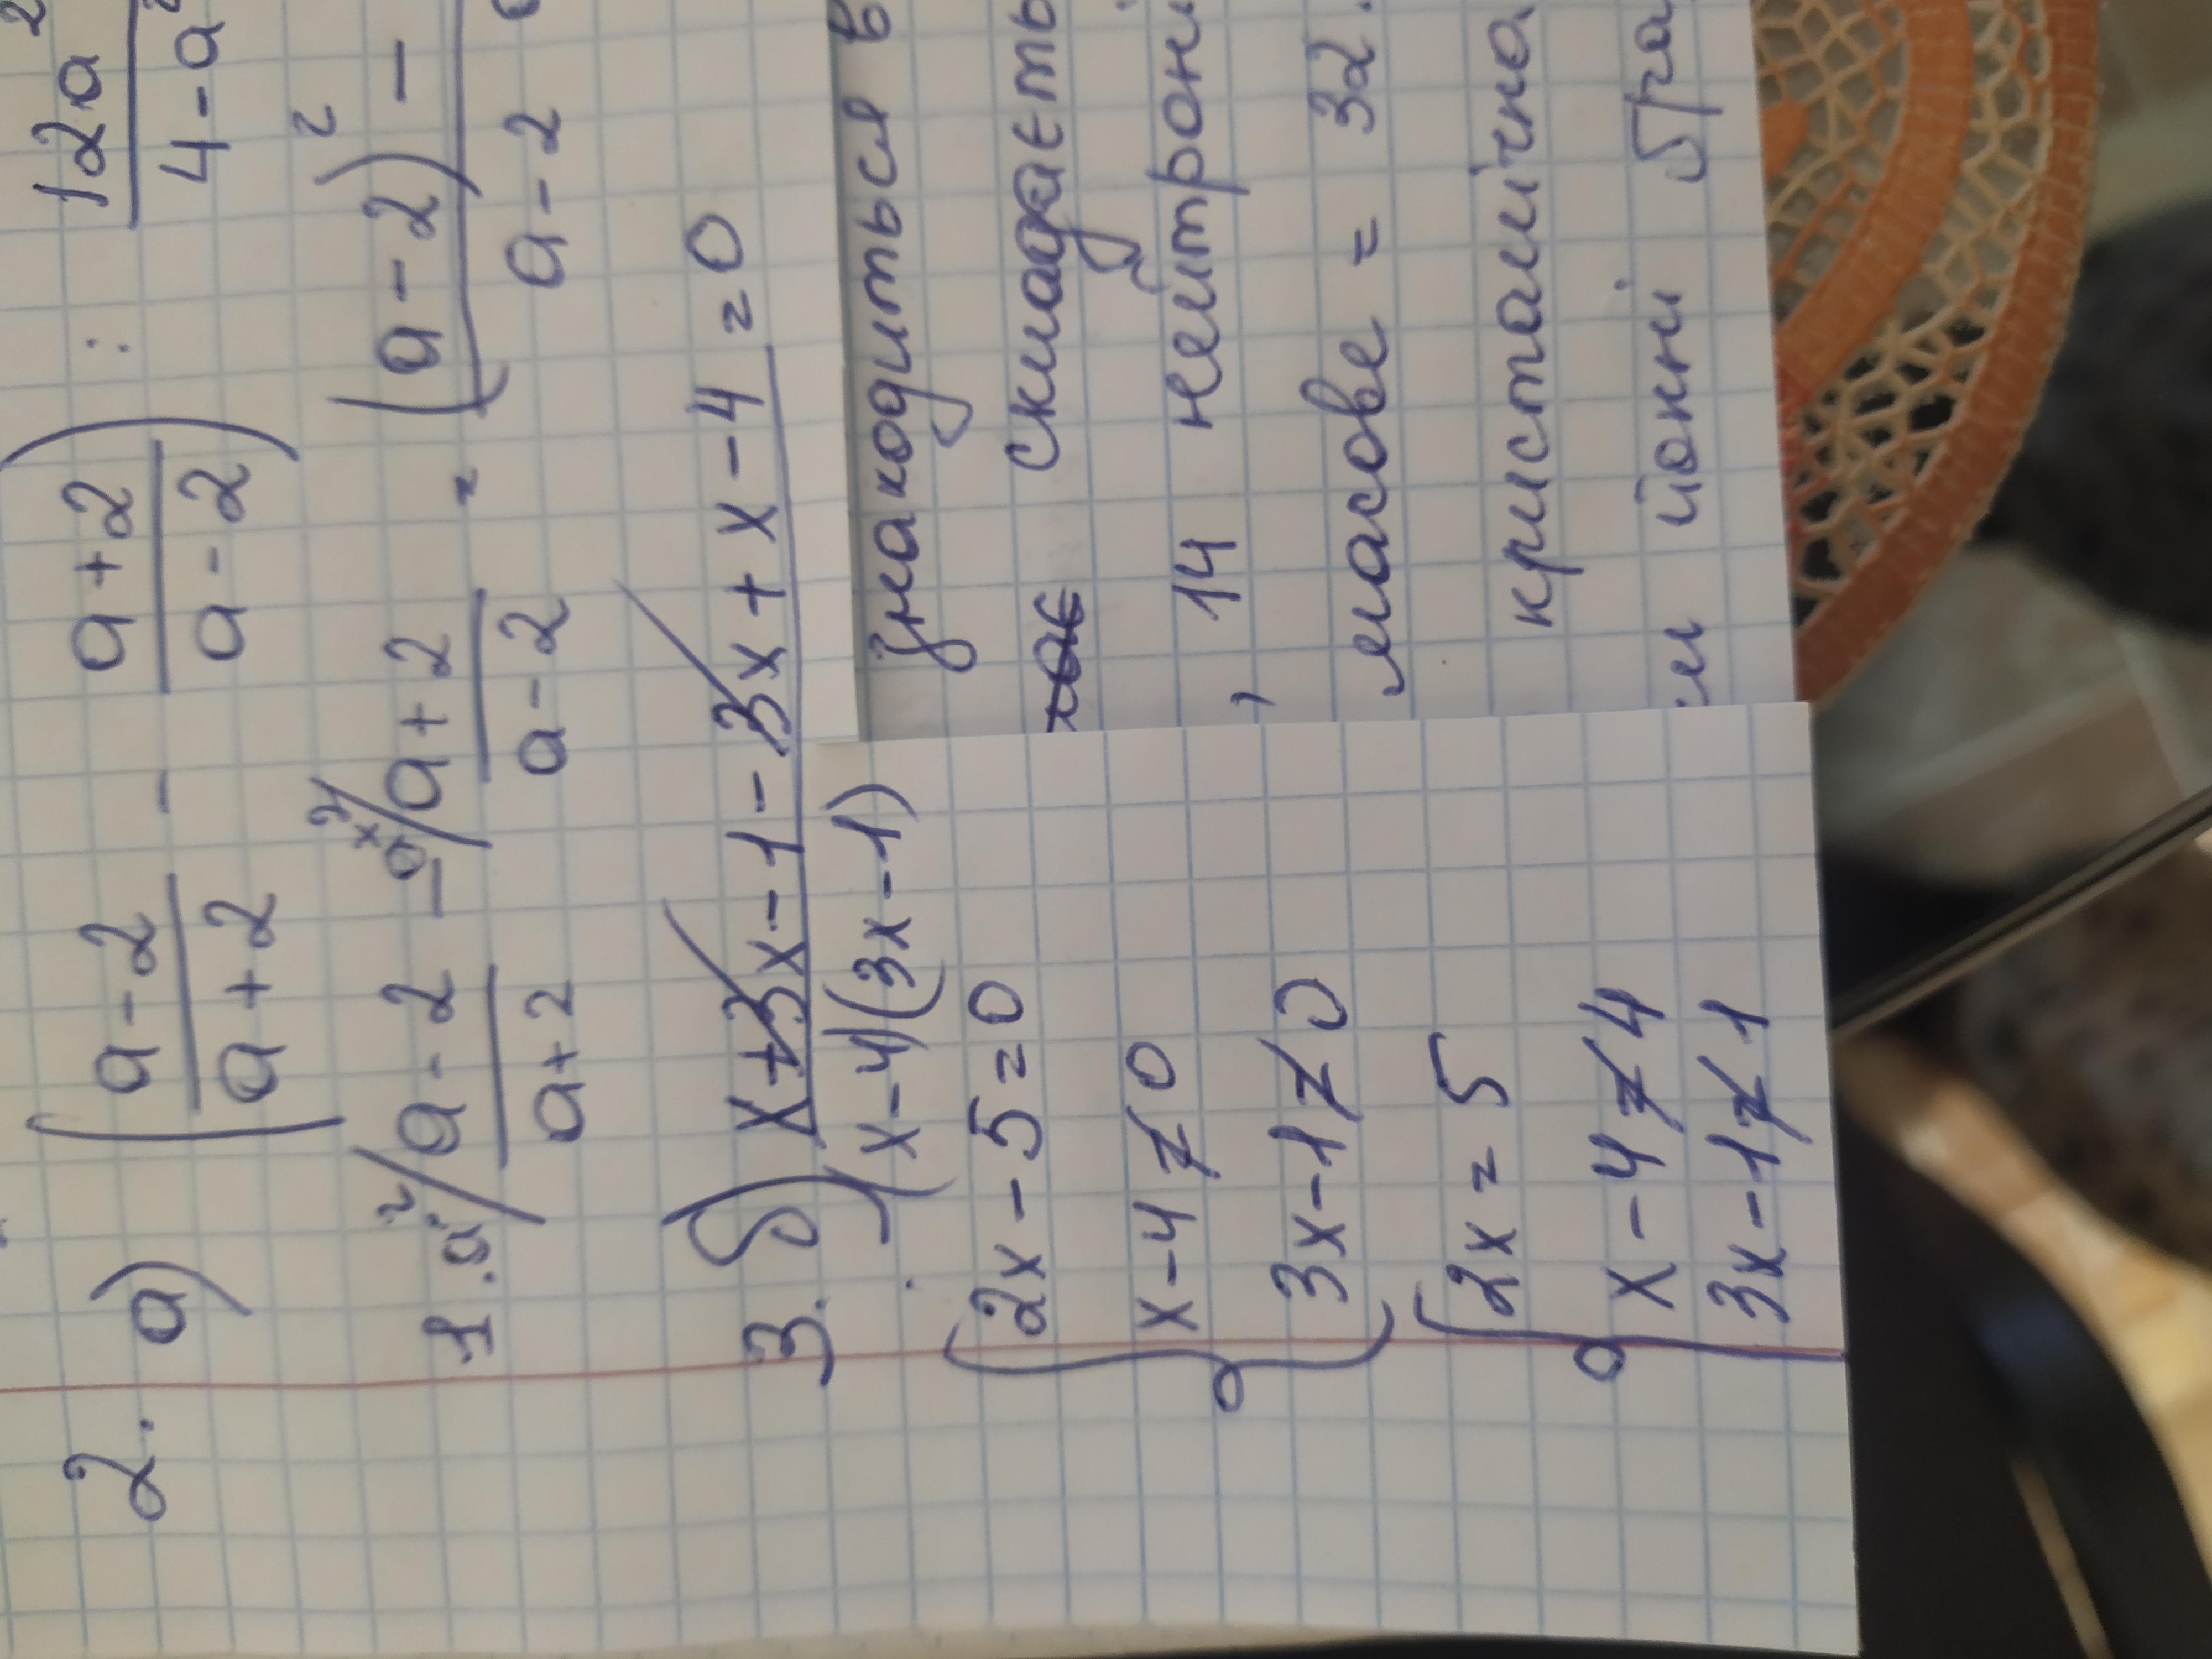 2. а) ( a-2 / a+2 - a+2 / a-2 ) : 12a² / 4-a²
1. a-2 / a+2 - a+2 / a-2 = (a-2)² -
a-2
3. б) x+3x-1-3x+x-4 = 0
(x-4)(3x-1)
{ 2x-5=0
x-4≠0
3x-1≠0
{ 2x=5
x-4≠4
3x-1≠1
знаходиться в
складається
, 14 нейтрони
масове = 32.
кристалічна
йонні